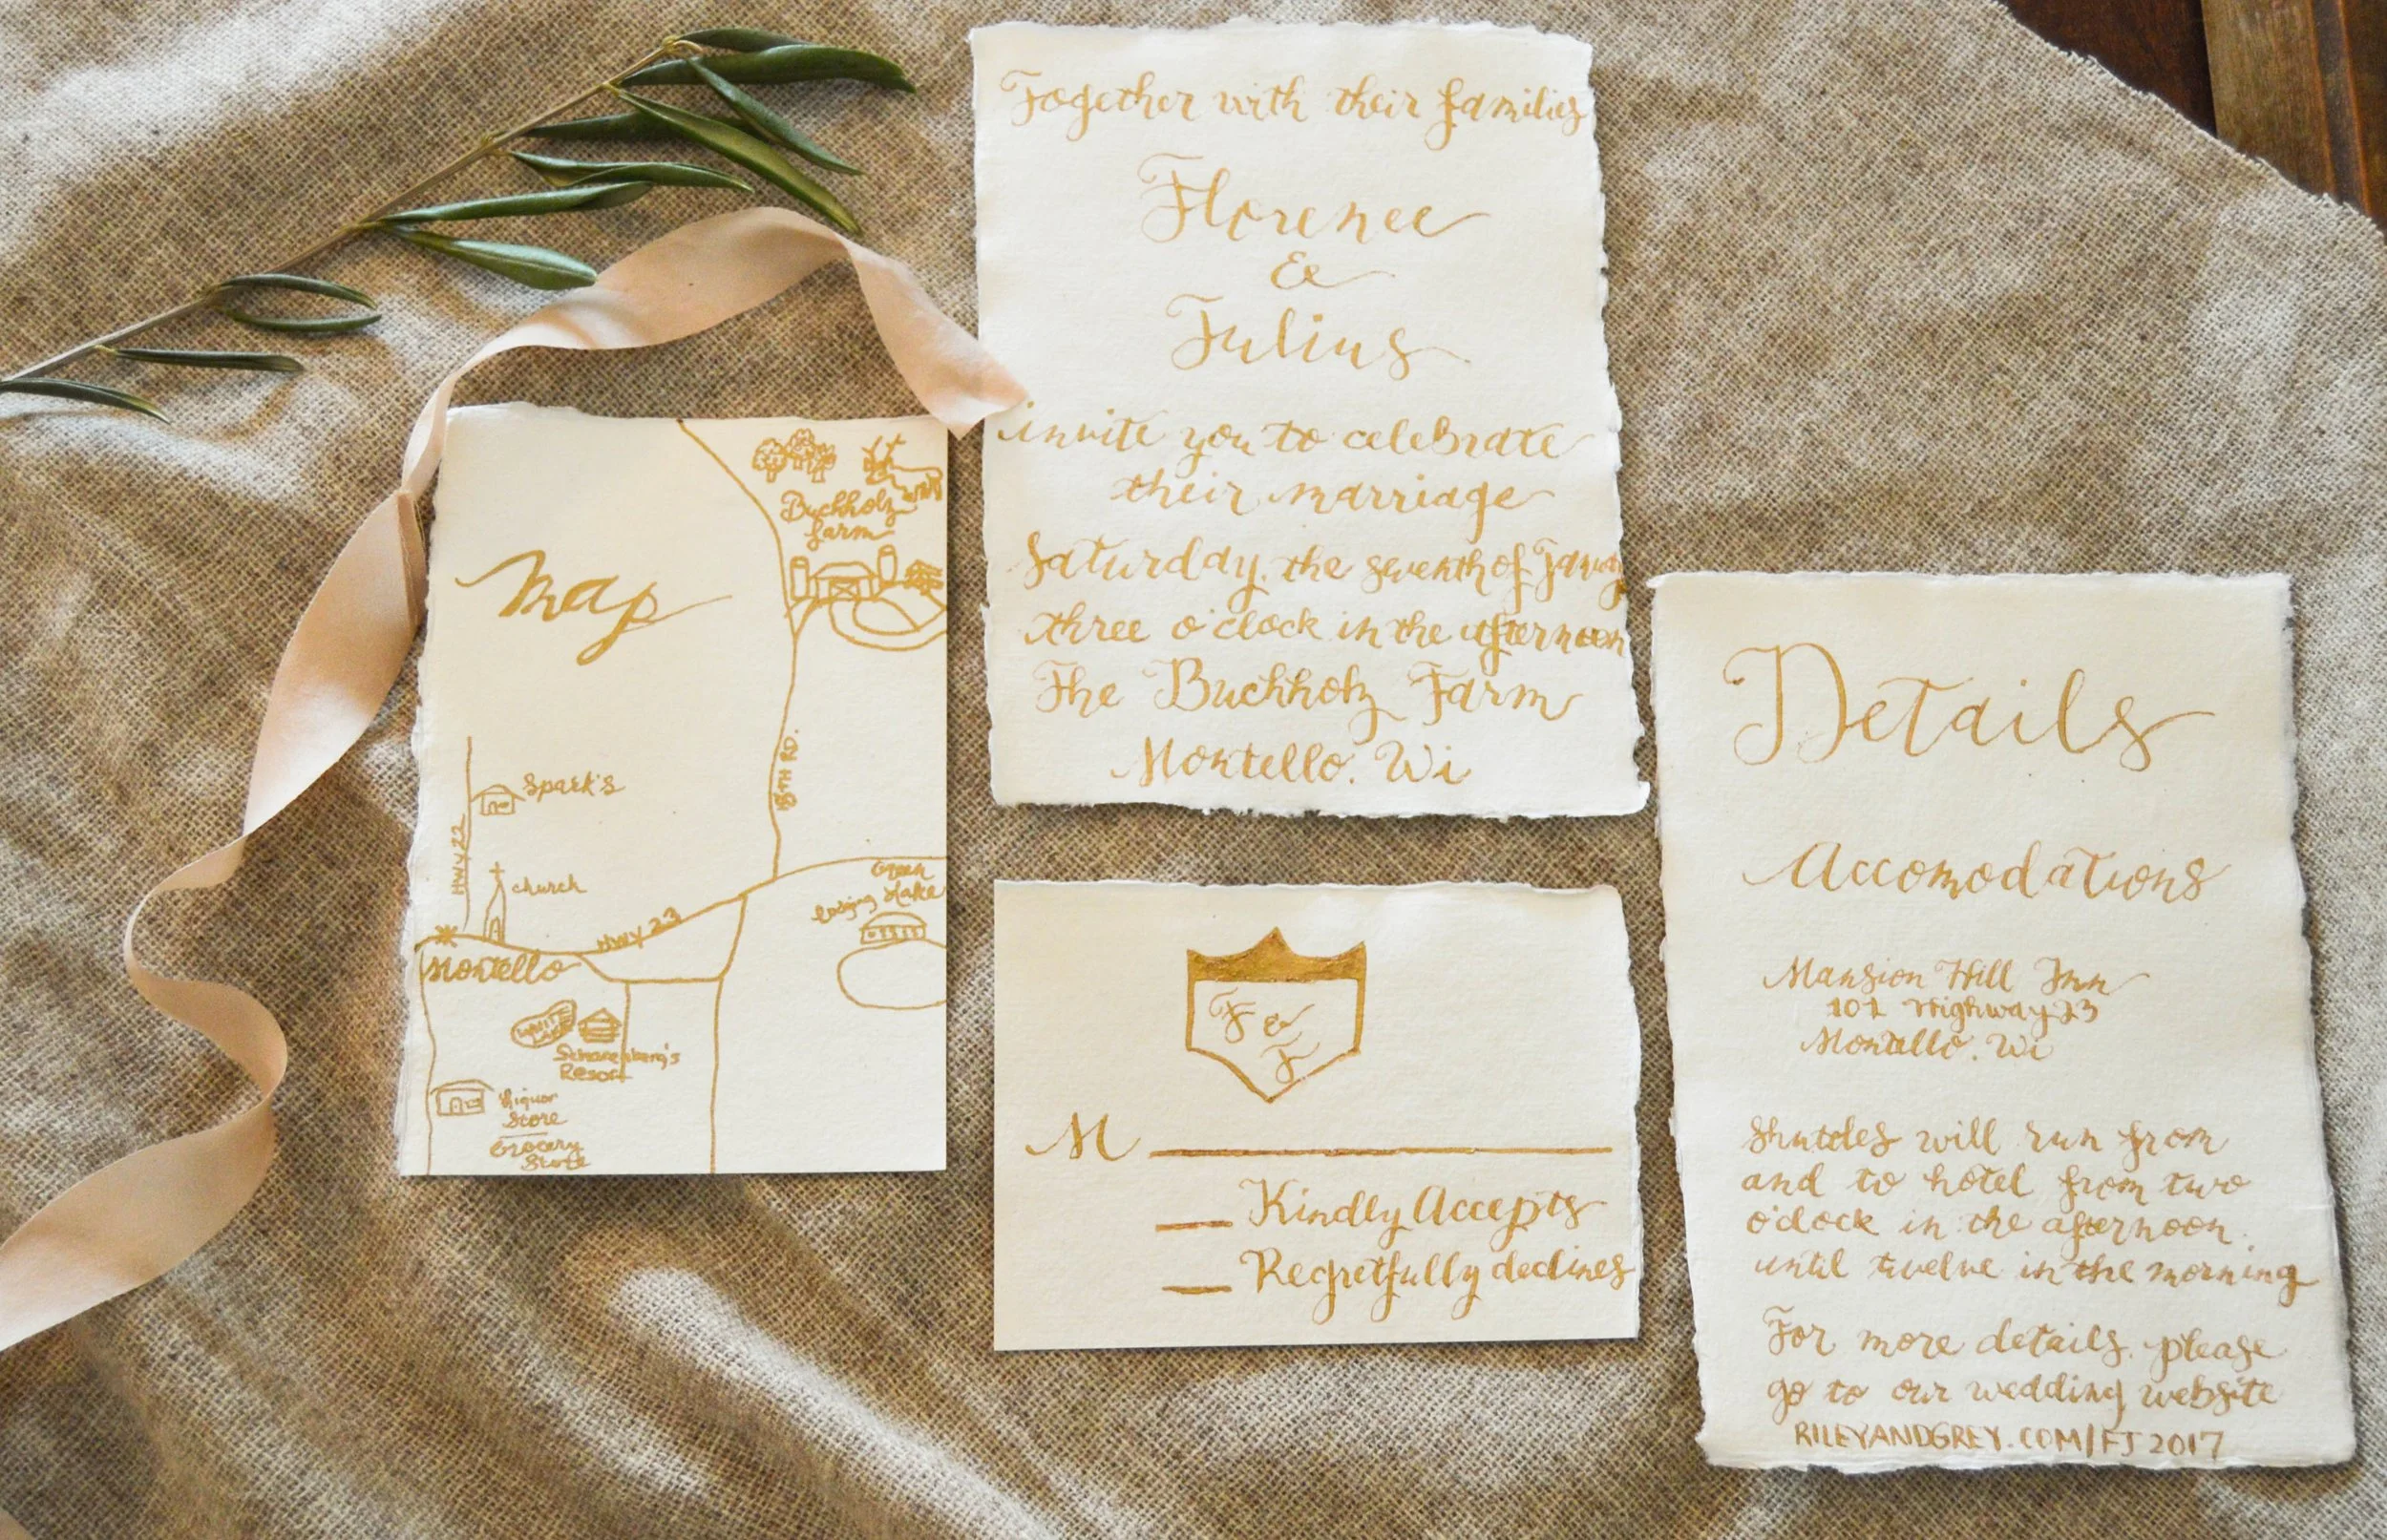 Together with their families
Florence
&
Julius
invite you to celebrate
their marriage
Saturday, the seventh of January
three o'clock in the afternoon
The Buchholz Farm
Montello, Wi
Map
Buchholz
farm
8TH RD.
Spark's
HWY 22
church
HWY 23
Green
Lake
Montello
Resort
Liquor
Store
Grocery
Store
F &
J
M
Kindly Accepts
Regretfully declines
Details
Accomodations
Mansion Hill Inn
101 Highway 23
Montello, Wi
Shuttles will run from
and to hotel from two
o'clock in the afternoon
until twelve in the morning
For more details, please
go to our wedding website
RILEYANDGREY.COM/FJ2017